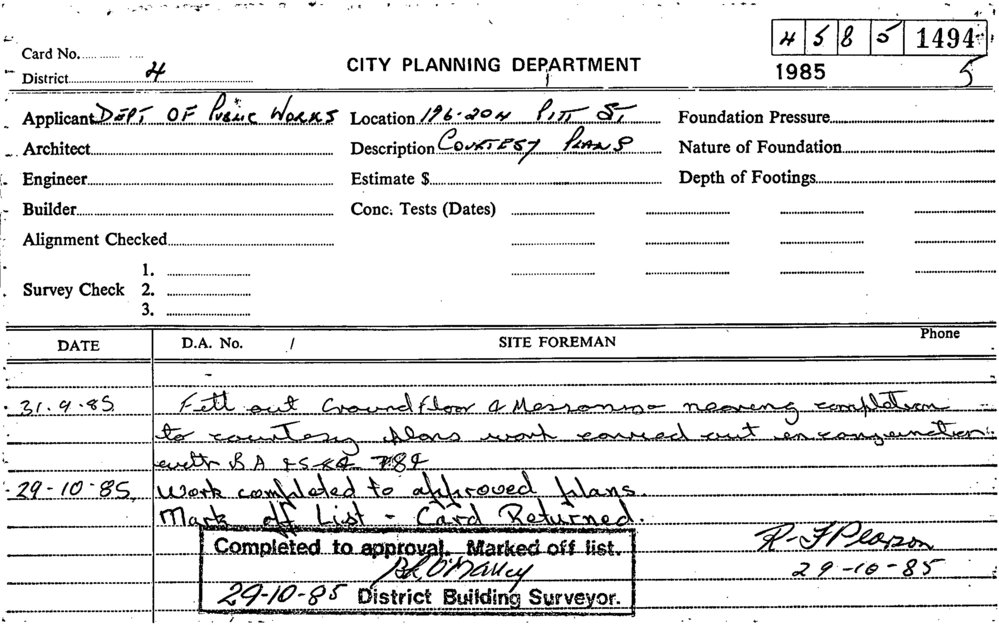 45 85 1494
Card No.
CITY PLANNING DEPARTMENT
1985 5
District 4
Applicant DEPT OF PUBLIC WORKS Location 196-204 PITT ST. Foundation Pressure
Architect Description COURTESY PLANS Nature of Foundation
Engineer Estimate $ Depth of Footings
Builder Conc. Tests (Dates)
Alignment Checked
1.
Survey Check 2.
3.
DATE D.A. No. / SITE FOREMAN Phone
31.9.85 Fett out Ground floor & nearing completion
to courtesy plans work carried out in conjunction
with B A
29-10-85. Work completed to approved plans.
Mark off List - Card Returned.
Completed to approval. Marked off list.
R.F Pearson
29-10-85
29-10-85 District Building Surveyor.